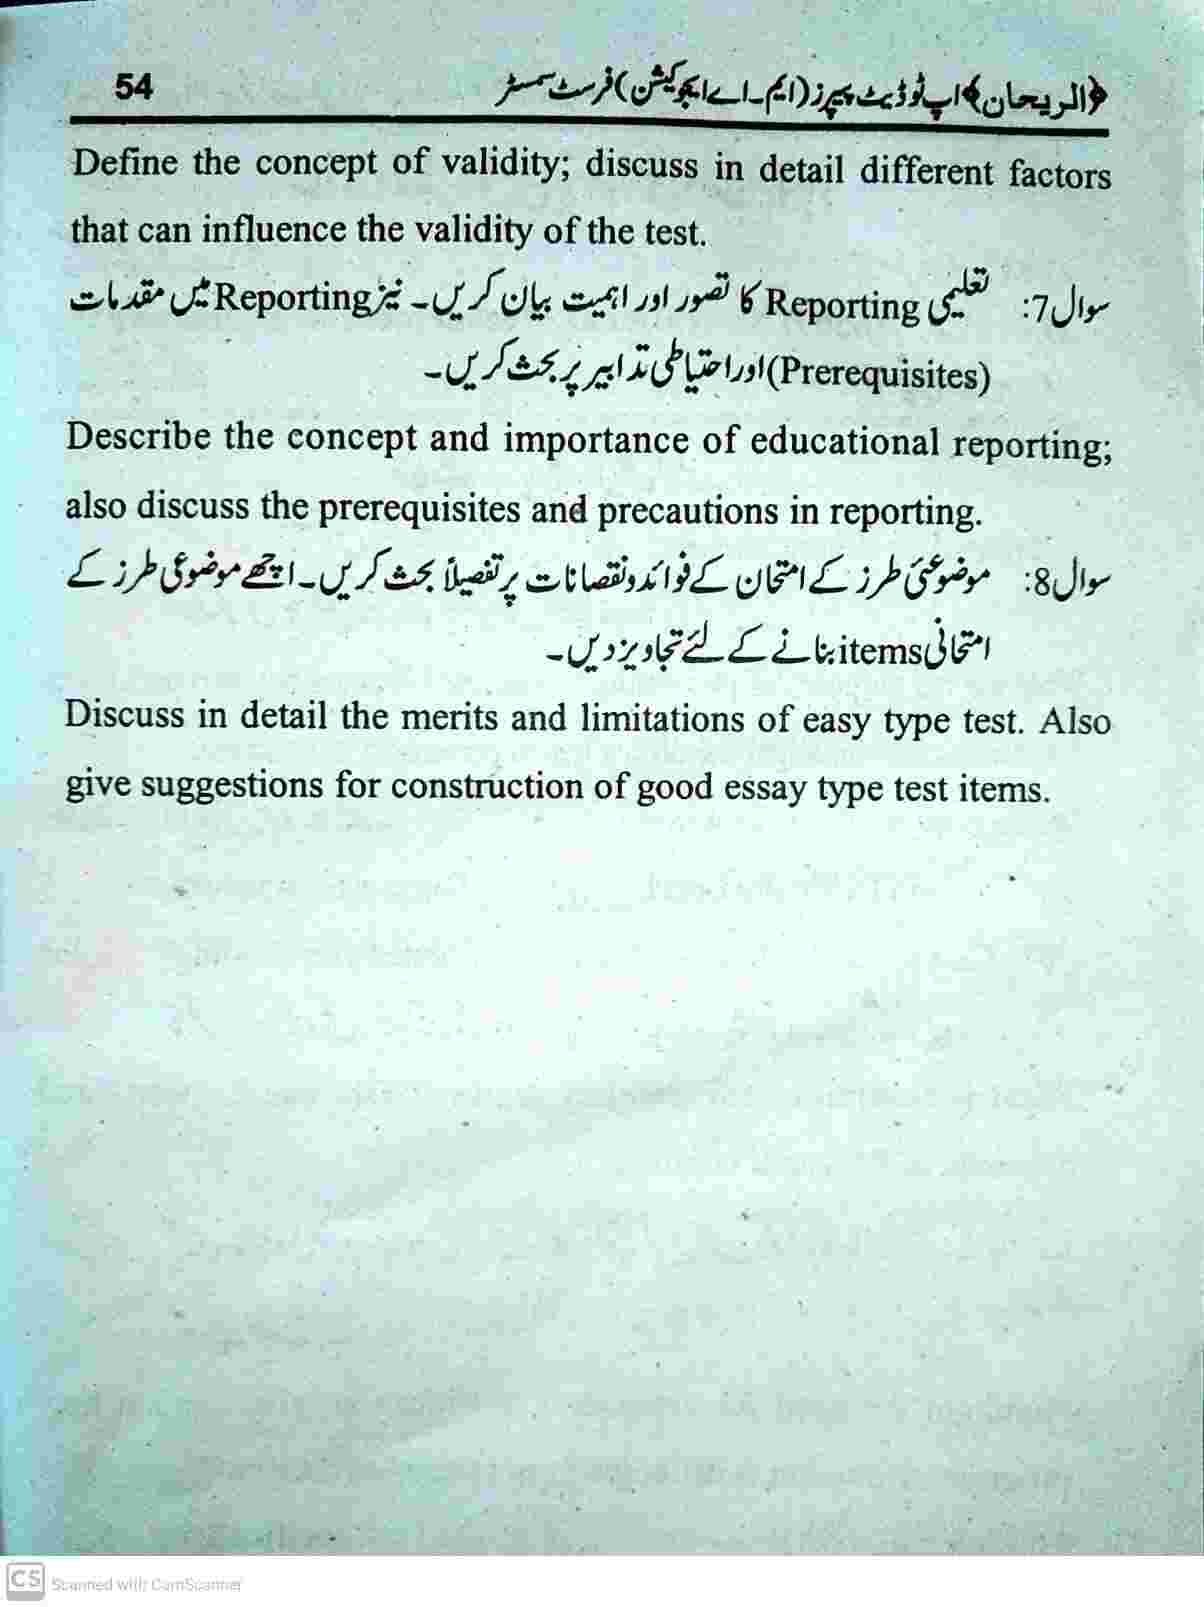 54 ﴿الریحان﴾ اپ ٹو ڈیٹ پیپرز (ایم۔اے ایجوکیشن) فرسٹ سمسٹر
Define the concept of validity; discuss in detail different factors
that can influence the validity of the test.
سوال 7: تعلیمی Reporting کا تصور اور اہمیت بیان کریں۔ نیز Reporting میں مقدمات
(Prerequisites) اور احتیاطی تدابیر پر بحث کریں۔
Describe the concept and importance of educational reporting;
also discuss the prerequisites and precautions in reporting.
سوال 8: موضوعئی طرز کے امتحان کے فوائد و نقصانات پر تفصیلاً بحث کریں۔ اچھے موضوعی طرز کے
امتحانی items بنانے کے لئے تجاویز دیں۔
Discuss in detail the merits and limitations of easy type test. Also
give suggestions for construction of good essay type test items.
CS Scanned with CamScanner